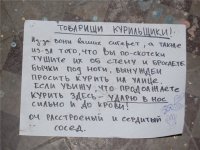 ТОВАРИЩИ КУРИЛЬЩИКИ!
Из-за вони ваших сигарет, а также
из-за того, что вы по-скотски
тушите их об стену и бросаете
бычки под ноги, вынужден
просить курить на улице.
Если увижу, что продолжаете
курить здесь - ударю в нос
сильно и до крови!
оч расстроенный и сердитый
сосед.